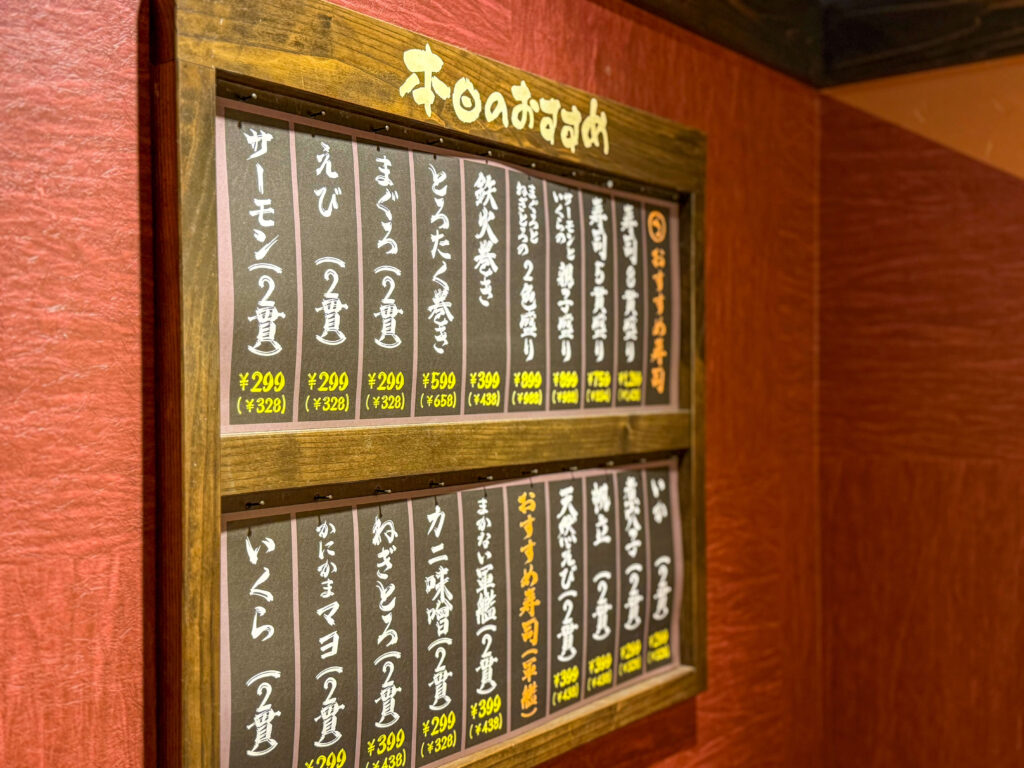 本日のおすすめ
おすすめ寿司
寿司8貫盛り
寿司5貫盛り
¥759
サーモンと
いくらの
親子盛り
¥899
(¥988)
まぐろと
ねぎとろの
2色盛り
¥899
(¥988)
鉄火巻き
¥399
(¥438)
とろたく巻き
¥599
(¥658)
まぐろ(2貫)
¥299
(¥328)
えび(2貫)
¥299
(¥328)
サーモン(2貫)
¥299
(¥328)
いか(2貫)
¥299
(¥328)
煮穴子(2貫)
¥299
(¥328)
帆立(2貫)
¥399
(¥438)
天然えび(2貫)
¥399
(¥438)
おすすめ寿司(軍艦)
まかない軍艦(2貫)
¥399
(¥438)
カニ味噌(2貫)
¥299
(¥328)
ねぎとろ(2貫)
¥399
(¥438)
かにかまマヨ(2貫)
¥299
いくら(2貫)